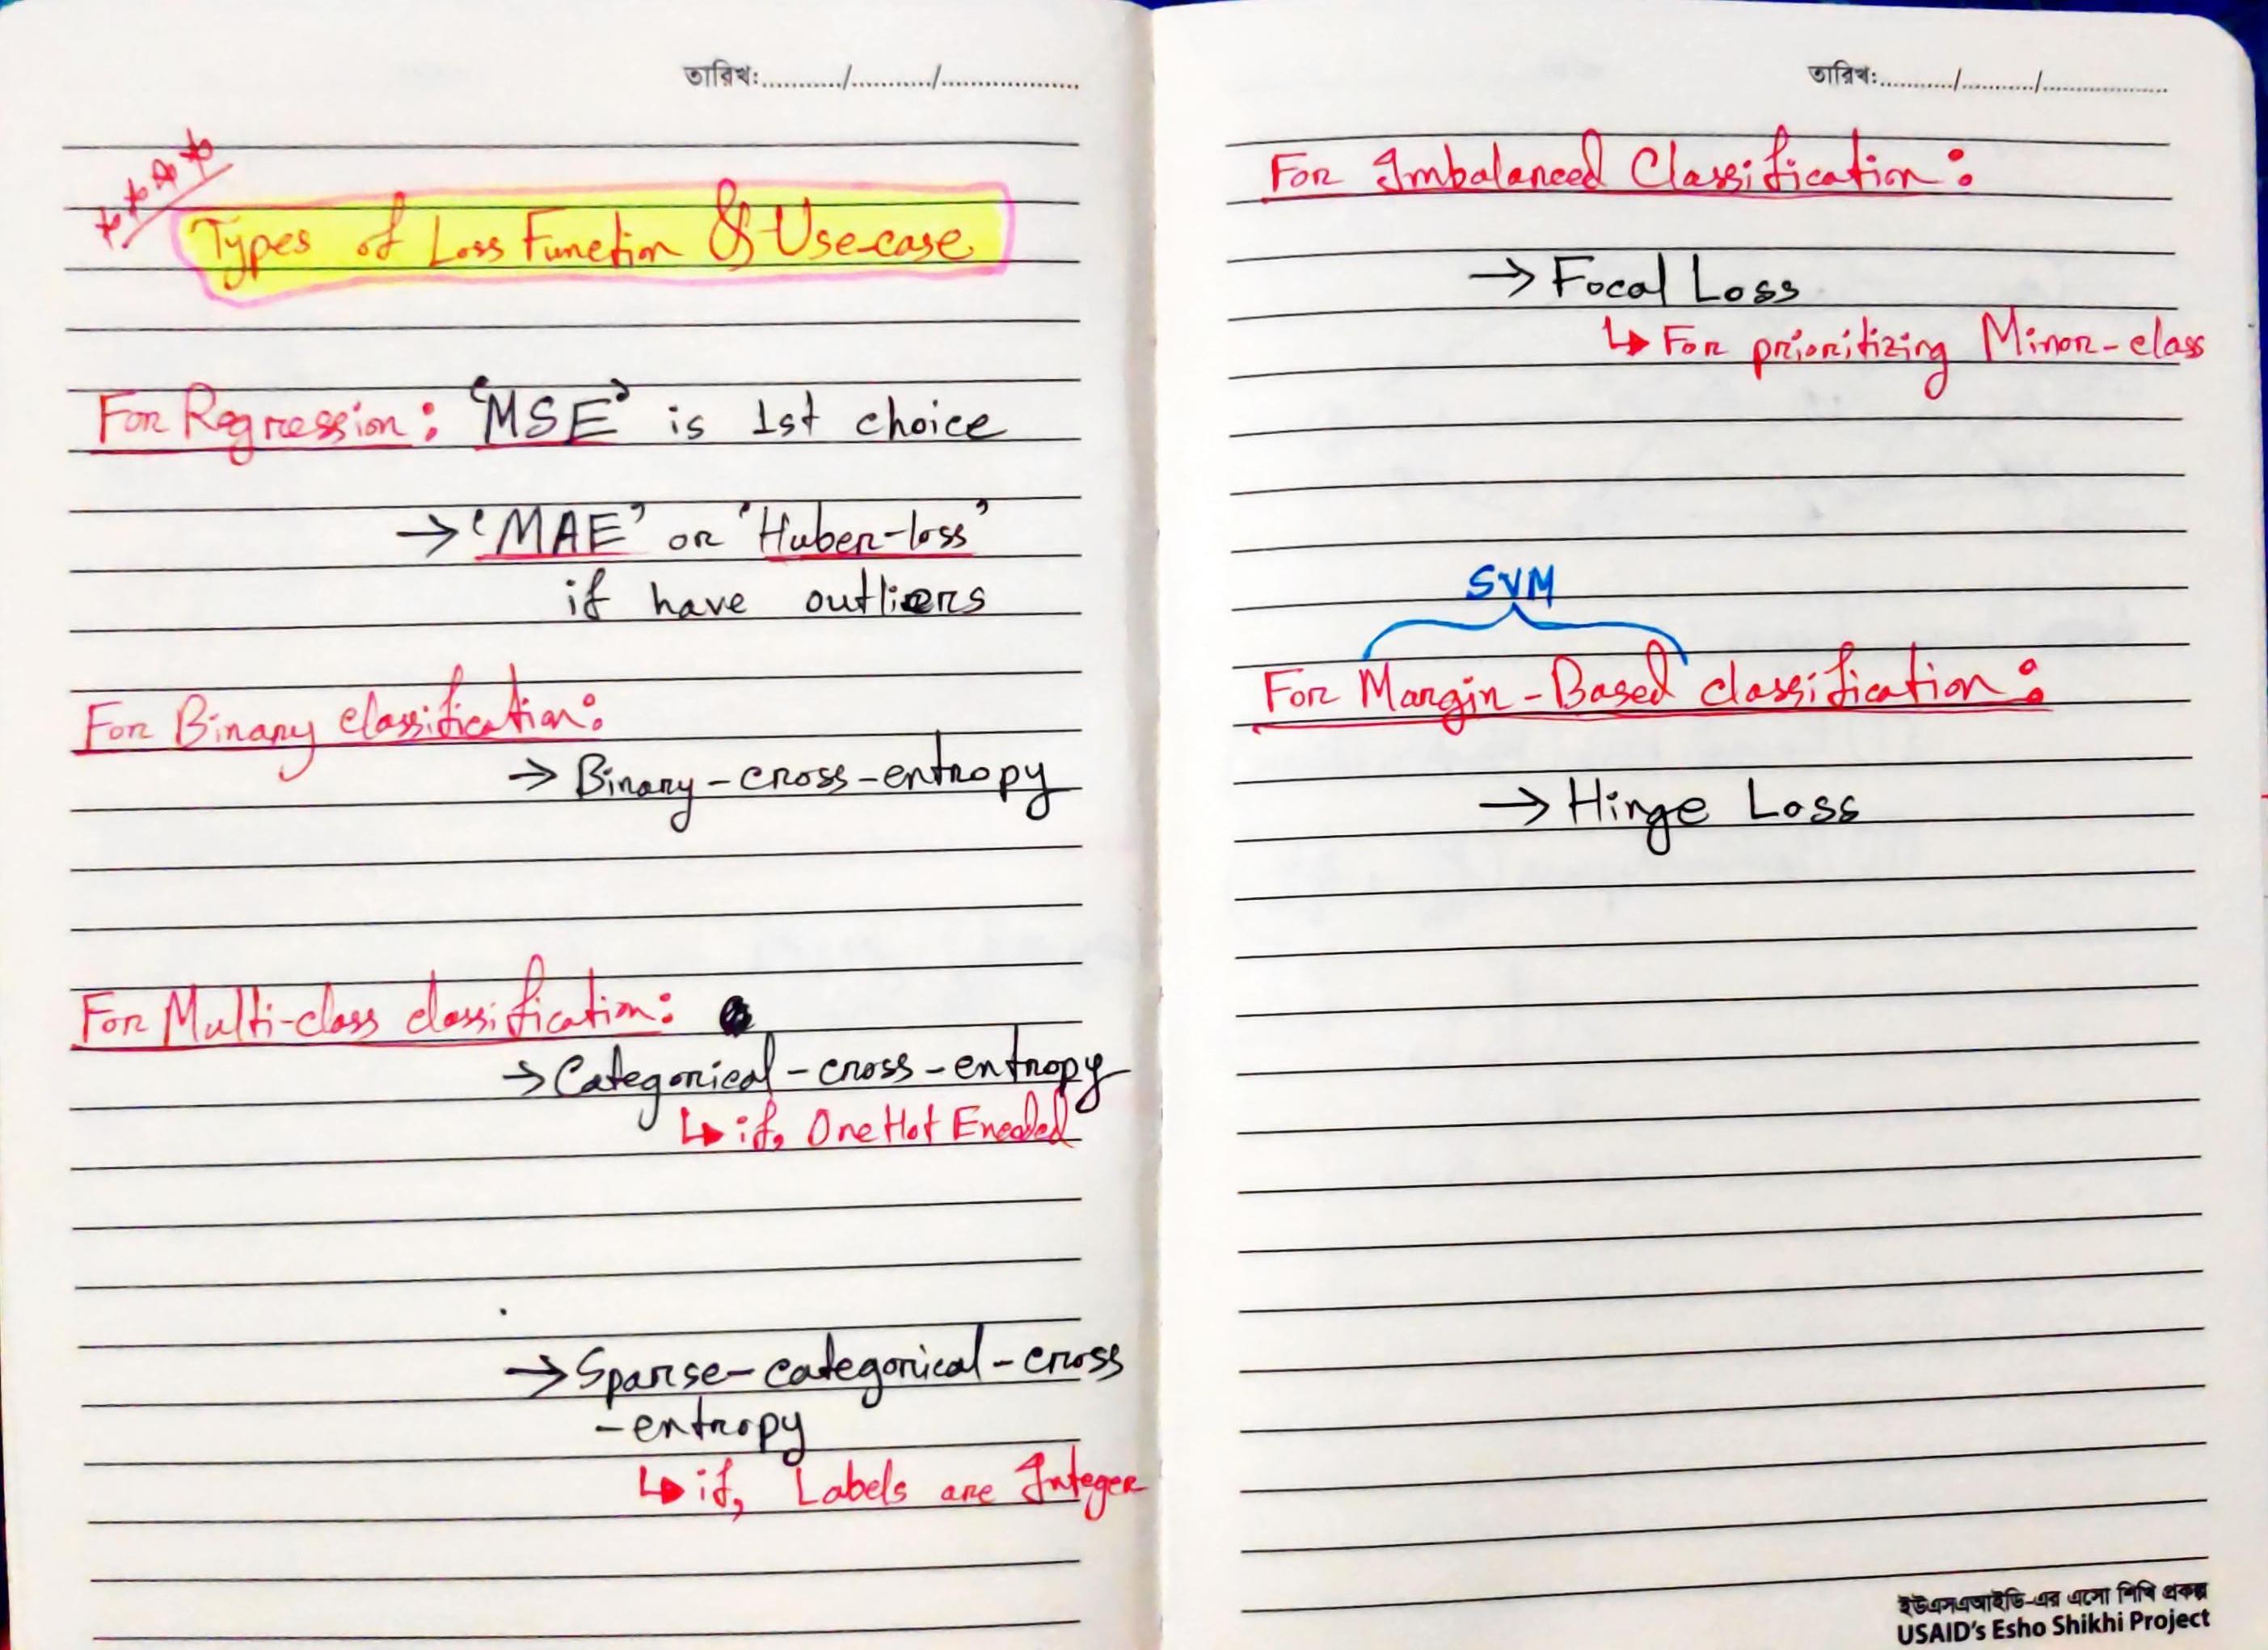 তারিখ:........../........../.................
Types of Loss Function & Use-case
For Regression: 'MSE' is 1st choice
→ 'MAE' or 'Huber-loss'
if have outliers
For Binary classification:
→ Binary-cross-entropy
For Multi-class classification:
→ Categorical-cross-entropy
↳ if, One Hot Encoded
→ Sparse-categorical-cross
-entropy
↳ if, Labels are Integer
তারিখ:........../........../.................
For Imbalanced Classification:
→ Focal Loss
↳ For prioritizing Minor-class
SVM
For Margin-Based classification:
→ Hinge Loss
ইউএসএআইডি-এর এসো শিখি প্রকল্প
USAID's Esho Shikhi Project